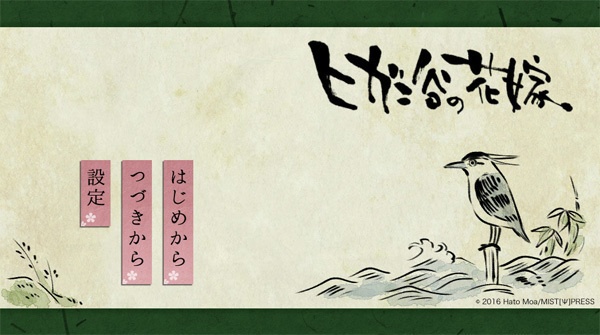 ヒガニ谷の花嫁
はじめから
つづきから
設定
© 2016 Hato Moa/MIST[Ψ]PRESS